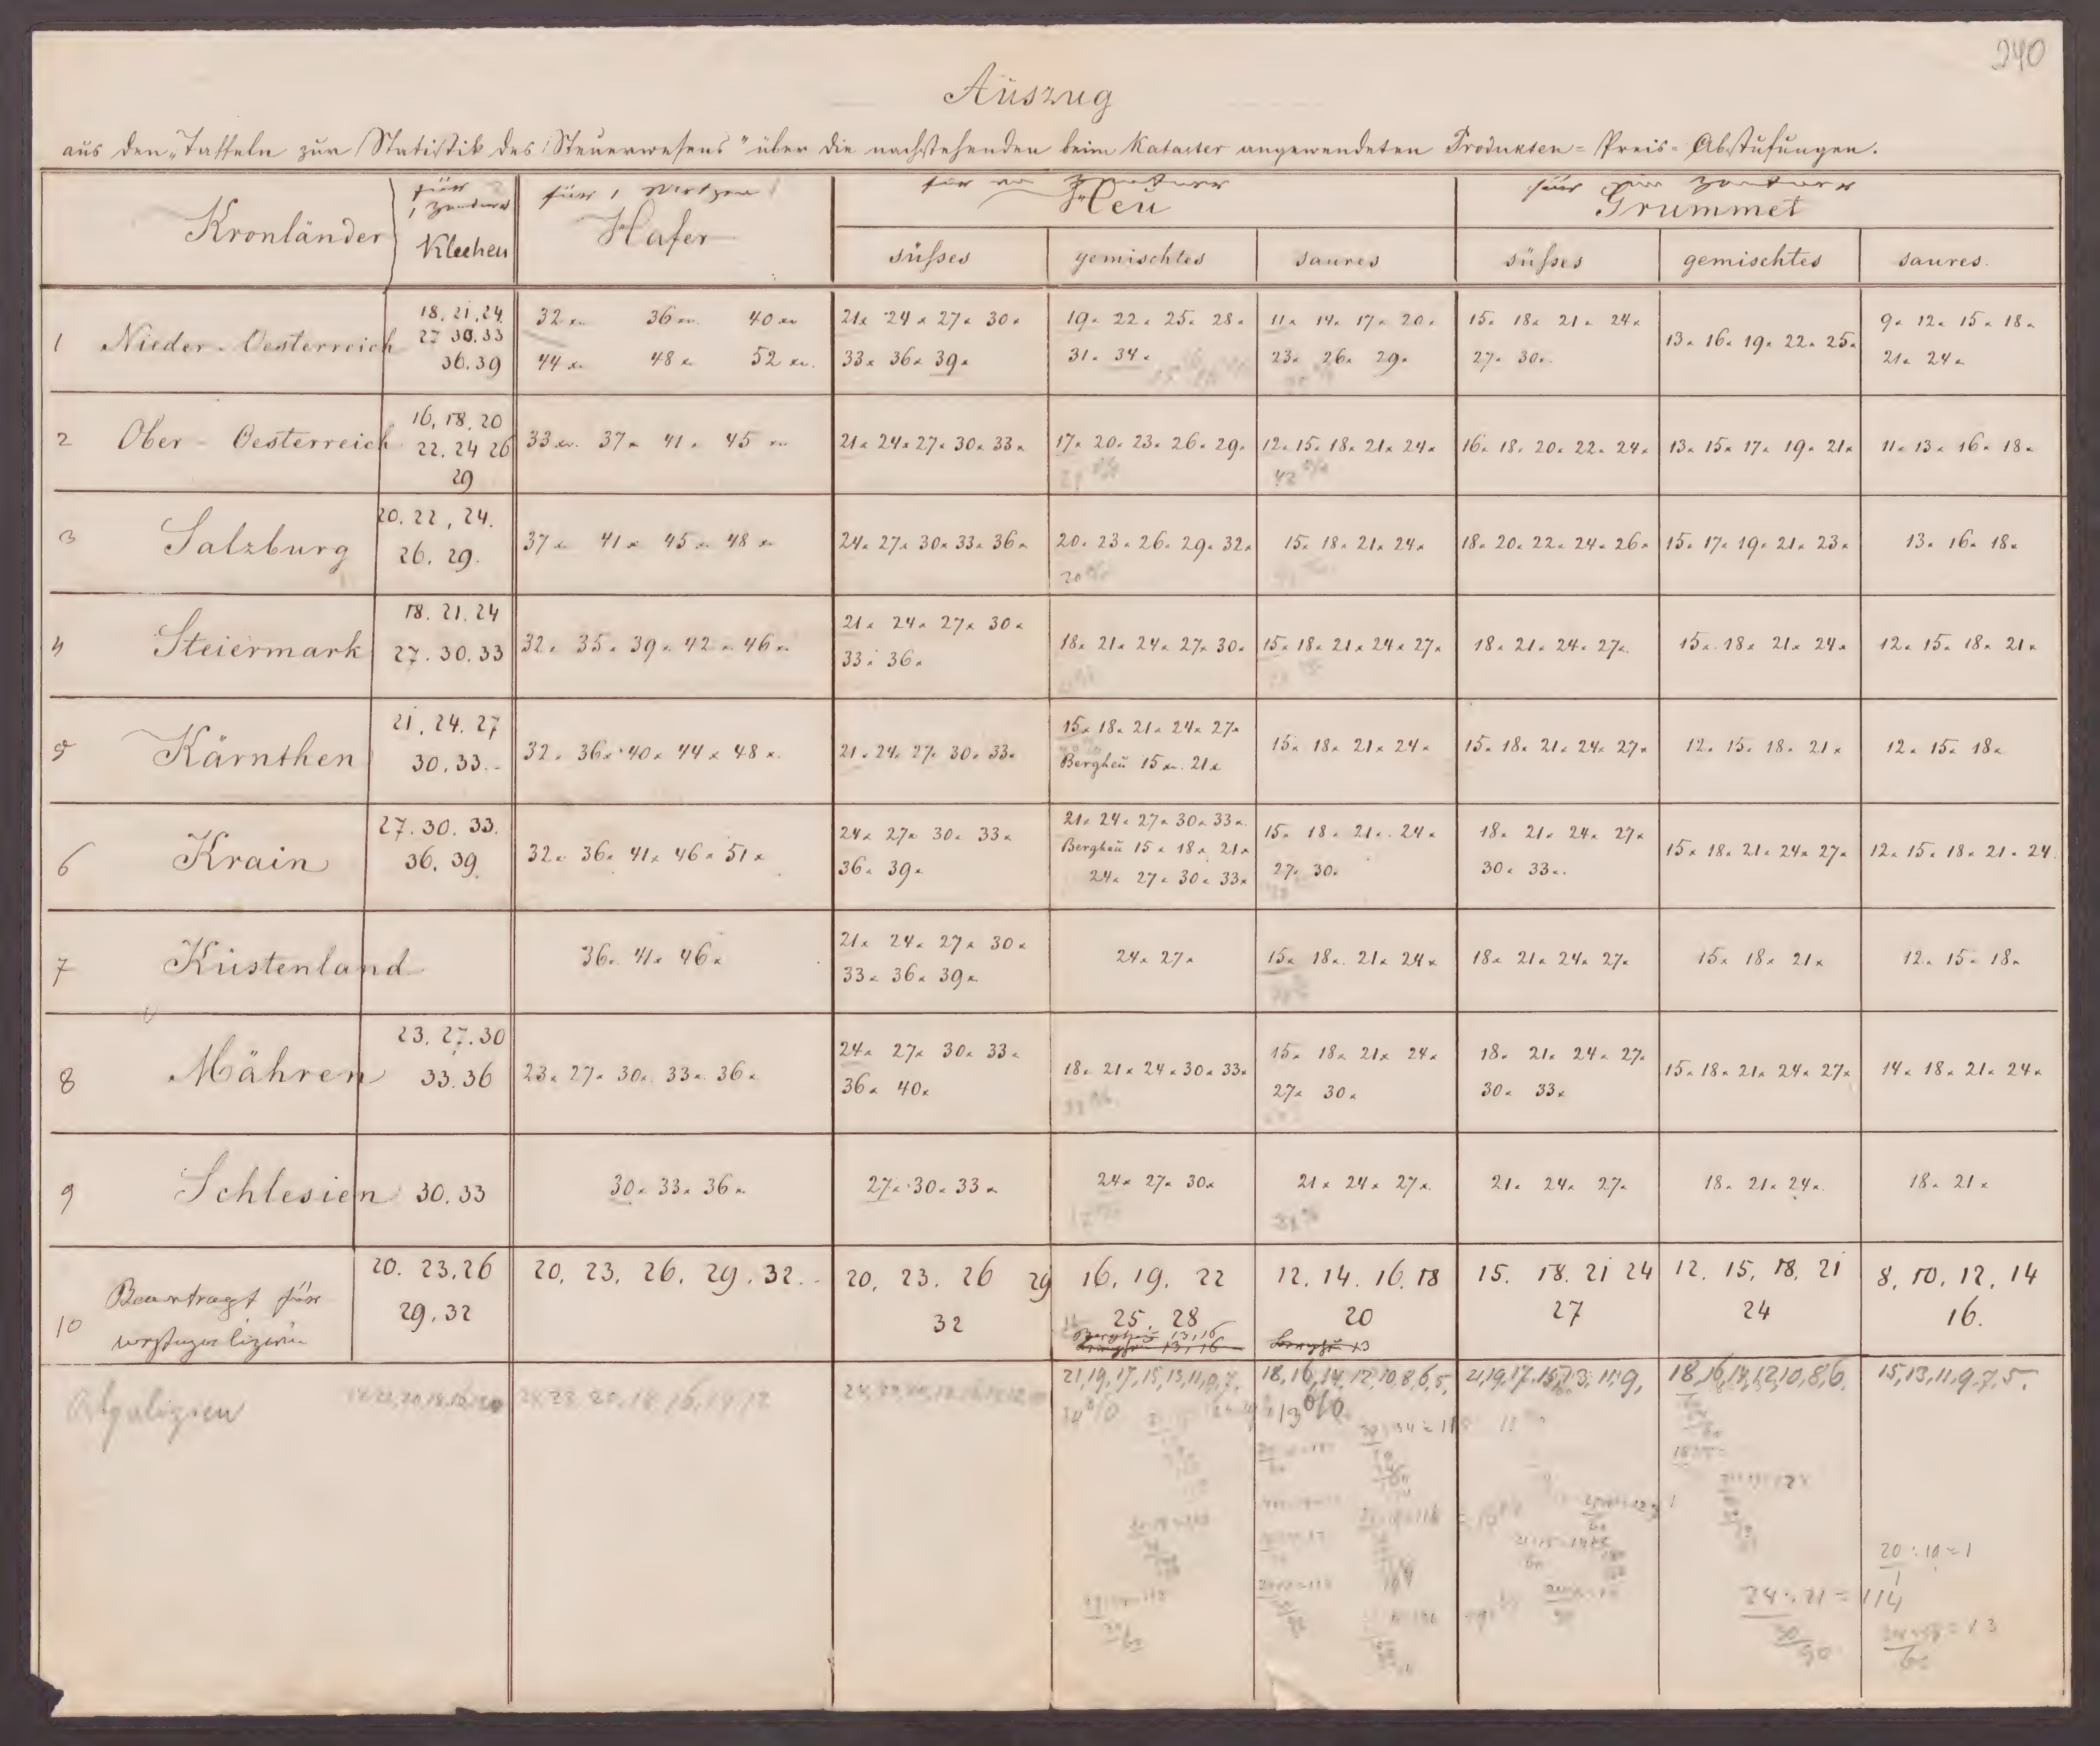 240
Auszug
aus den „Taffeln zur Statistik des Steuerwesens" über die nachstehenden beim Kataster angewendeten Produkten-Preis-Abstufungen.
Kronländer
für 1 Zentner
Kleehen
für 1 Metzen
Hafer
für ein Zentner
Heu
für ein Zentner
Grummet
süßes gemischtes saures süßes gemischtes saures.
1 Nieder-Oesterreich
18. 21. 24.
27 30. 33
36. 39
32 xr. 36 xr. 40 xr
44 x. 48 x 52 xr.
21x 24x 27x 30x
33x 36x 39x
19x 22x 25x 28x
31x 34x
11x 14x 17x 20x
23x 26x 29x
15x 18x 21x 24x
27x 30x.
13x 16x 19x 22x 25x
9x 12x 15x 18x
21x 24x
2 Ober-Oesterreich
16, 18, 20
22. 24 26
29
33 xr. 37x 41x 45 xr
21x 24x 27x 30x 33x
17x 20x 23x 26x 29x
12x 15x 18x 21x 24x
16x 18x 20x 22x 24x
13x 15x 17x 19x 21x
11x 13x 16x 18x
3 Salzburg
20. 22, 24.
26. 29.
37x 41x 45x 48x
24x 27x 30x 33x 36x
20x 23x 26x 29x 32x
15x 18x 21x 24x
18x 20x 22x 24x 26x
15x 17x 19x 21x 23x
13x 16x 18x
4 Steiermark
18. 21. 24
27. 30. 33
32x 35x 39x 42x 46x
21x 24x 27x 30x
33x 36x
18x 21x 24x 27x 30x
15x 18x 21x 24x 27x
18x 21x 24x 27x
15x 18x 21x 24x
12x 15x 18x 21x
5 Kärnthen
21, 24. 27
30. 33.
32x 36x 40x 44x 48x
21x 24x 27x 30x 33x
15x 18x 21x 24x 27x
Bergheu 15xr. 21x
15x 18x 21x 24x
15x 18x 21x 24x 27x
12x 15x 18x 21x
12x 15x 18x
6 Krain
27. 30. 33.
36. 39.
32x 36x 41x 46x 51x
24x 27x 30x 33x
36x 39x
21x 24x 27x 30x 33x
Bergheu 15x 18x 21x
24x 27x 30x 33x
15x 18x 21x 24x
27x 30x
18x 21x 24x 27x
30x 33x.
15x 18x 21x 24x 27x
12x 15x 18x 21x 24.
7 Küstenland
36x 41x 46x
21x 24x 27x 30x
33x 36x 39x
24x 27x
15x 18x 21x 24x
18x 21x 24x 27x
15x 18x 21x
12x 15x 18x
8 Mähren
23. 27. 30
33. 36
23x 27x 30x 33x 36x
24x 27x 30x 33x
36x 40x
18x 21x 24x 30x 33x
15x 18x 21x 24x
27x 30x
18x 21x 24x 27x
30x 33x
15x 18x 21x 24x 27x
14x 18x 21x 24x
9 Schlesien
30. 33
30x 33x 36x
27x 30x 33x
24x 27x 30x
21x 24x 27x
21x 24x 27x
18x 21x 24x
18x 21x
10 Beantragt für
20. 23. 26
29. 32
20, 23, 26, 29, 32.
20, 23. 26 29
32
16, 19, 22
25. 28
Bergheu 13, 16
12. 14. 16. 18
20
15. 18. 21 24
27
12. 15, 18, 21
24
8, 10, 12, 14
16.
21, 19, 17, 15, 13, 11, 9, 7.
18, 16, 14, 12, 10, 8, 6, 5,
18, 16, 14, 12, 10, 8, 6.
15, 13, 11, 9, 7, 5.
13%